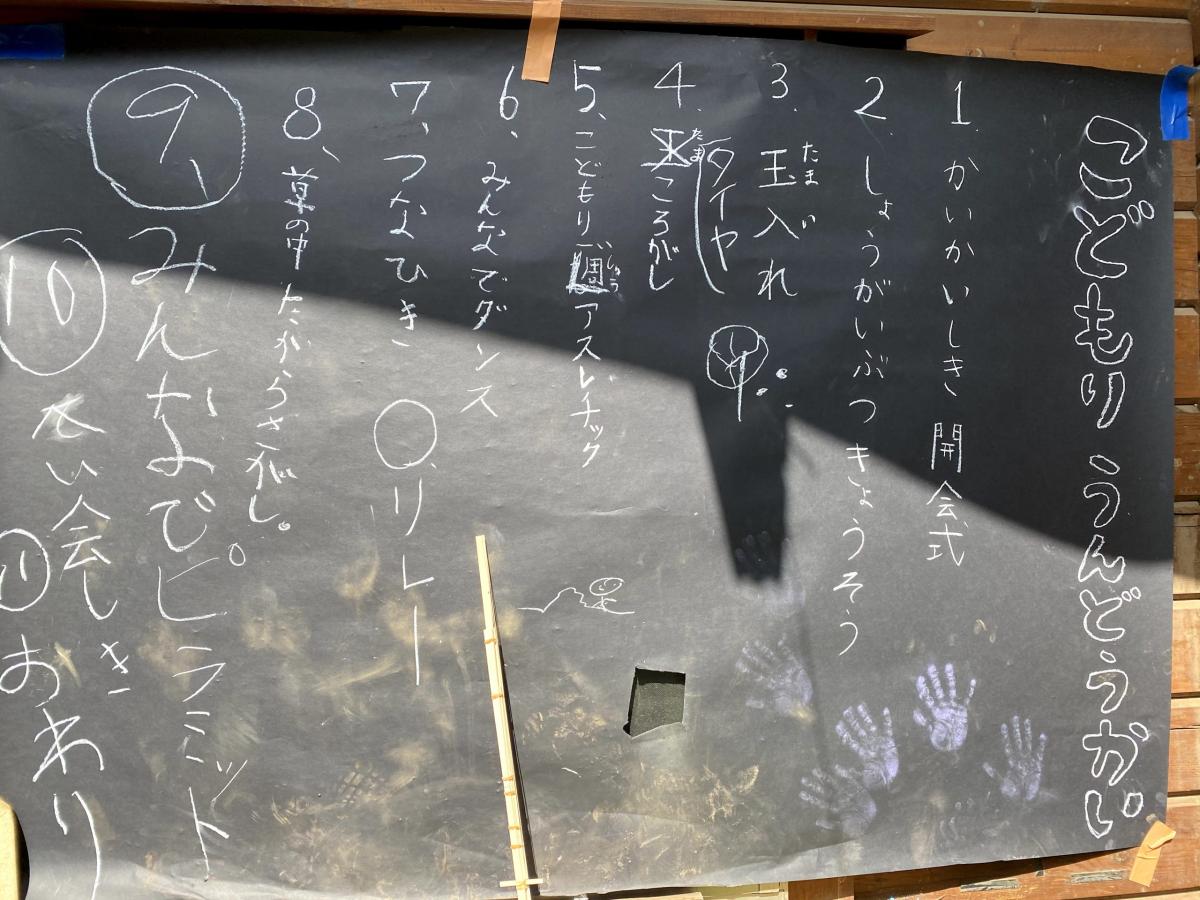 こどもり うんどうかい
1. かいかいしき 開会式
2. しょうがいぶつきょうそう
3. 玉入れ
たま
4. 玉ころがし
たま
タイヤ
5、こどもり一周アスレチック
6、みんなでダンス
7、つなひき 〇、リレー
8、草の中 たからさがし。
9、みんなでピラミッド
10 い会しき
11 おわり